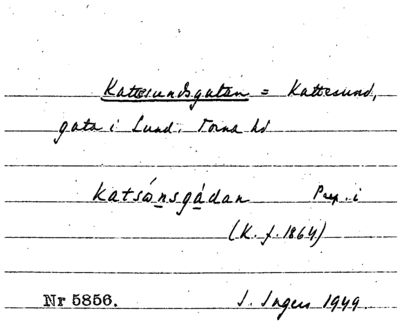 Kattesundsgatan = Kattesund,
gata i Lund. Torna hd
katsónsgádan Prep. i
(K. f. 1864)
Nr 5856. I. Ingers 1949.